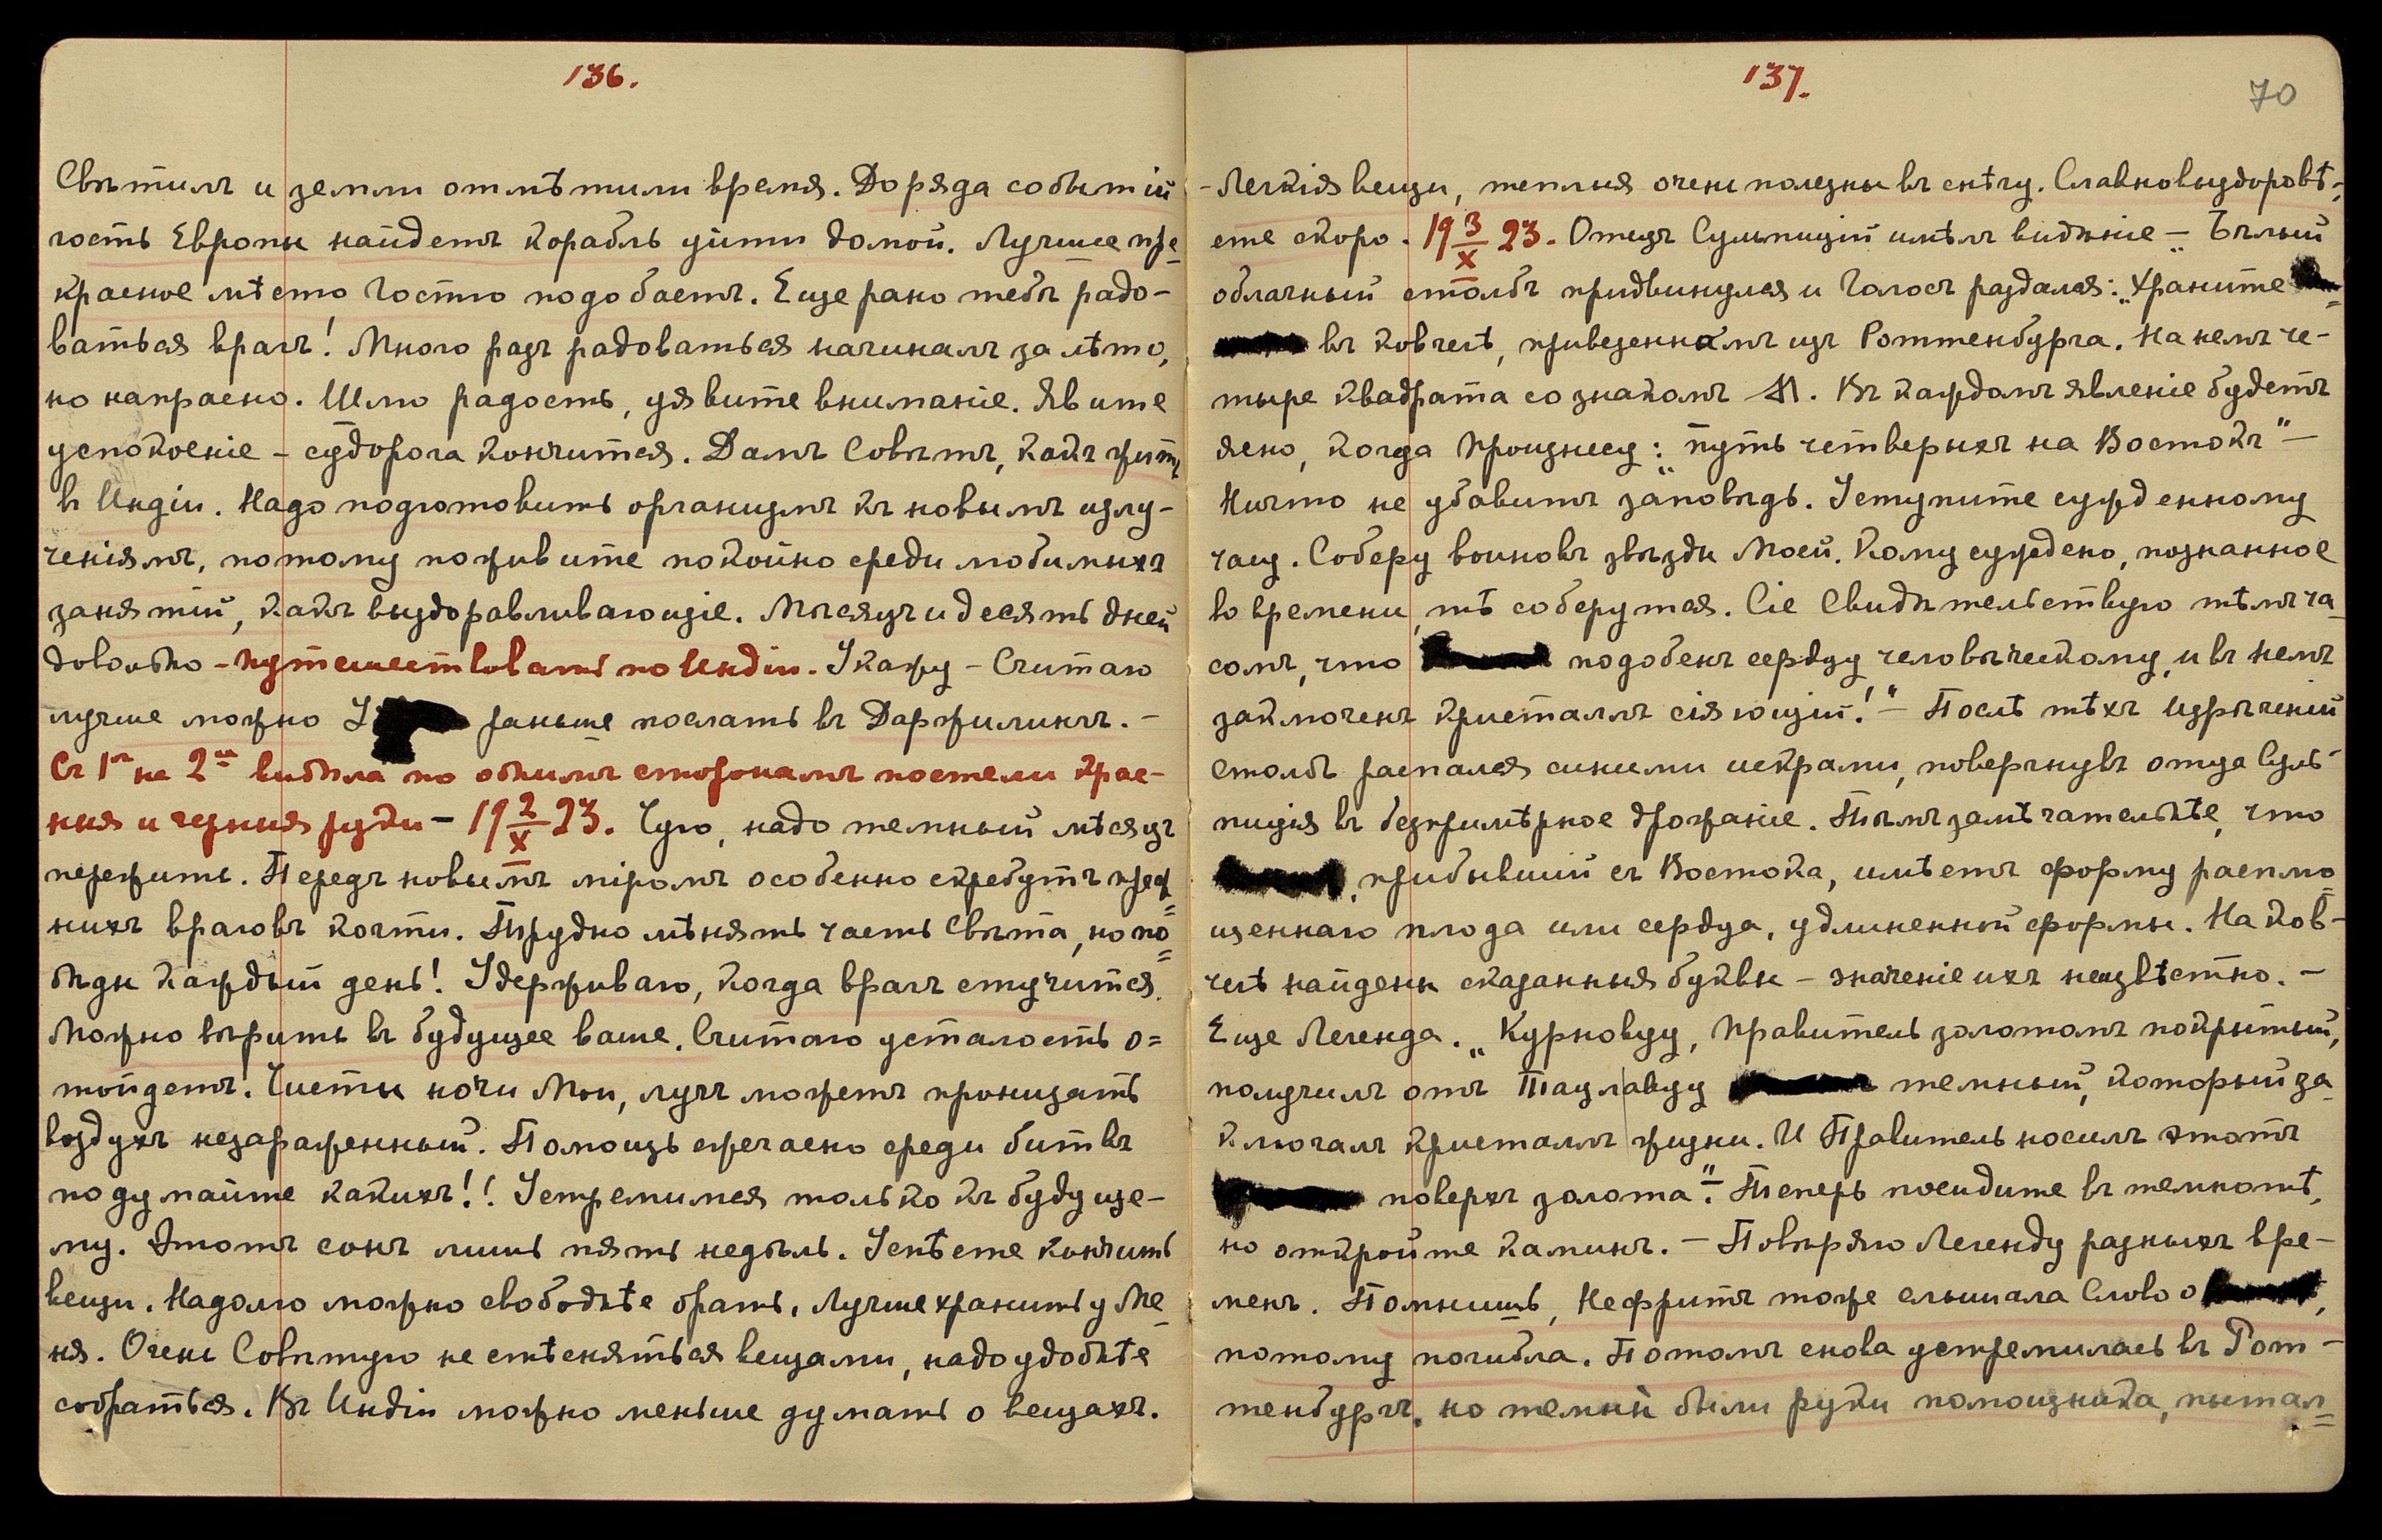 136.
Свѣтилъ и земли отмѣтили время. До ряда событій
гость Европы найдетъ корабль уйти домой. Лучшее пре-
красное мѣсто Гостю подобаетъ. Еще рано тебѣ радо-
ваться врагъ! Много разъ радоваться начиналъ за лѣто,
но напрасно. Шлю радость, уявите вниманіе. Явите
успокоеніе – судорога кончится. Дамъ Совѣтъ, какъ жить
въ Индіи. Надо подготовить организмъ къ новымъ излу-
ченіямъ, потому поживите покойно среди любимыхъ
занятій, какъ выздоравливающіе. Мѣсяцъ и десять дней
довольно – путешествовать по Индіи. Укажу – Считаю
лучше можно У раньше послать въ Даржилингъ. –
Съ 1го на 2ое видѣла по обѣимъ сторонамъ постели крас-
ныя и черныя руки – 19 2/X 23. Чую, надо темный мѣсяцъ
пережить. Передъ новымъ міромъ особенно скребутъ преж=
нихъ враговъ когти. Трудно мѣнять часть Свѣта, но по=
бѣды каждый день! Удерживаю, когда врагъ стучится.
Можно вѣрить въ будущее ваше. Считаю усталость о=
тойдетъ. Чисты ночи Мои, лучъ можетъ проницать
воздухъ незараженный. Помощь ежечасно среди битвъ
подумайте какихъ!! Устремимся только къ будуще-
му. Этотъ сонъ лишь пять недѣль. Успѣете кончить
вещи. Надолго можно свободнѣе брать, лучше хранить у Ме-
ня. Очень Совѣтую не стѣсняться вещами, надо удобнѣе
собраться. Въ Индіи можно меньше думать о вещахъ.
137.
70
– Легкія вещи, теплыя очень полезны въ снѣгу. Славно выздоровѣ-
ете скоро. 19 3/X 23. Отецъ Сульпицій имѣлъ видѣніе – „Бѣлый
облачный столбъ придвинулся и Голосъ раздался: „Храните
въ ковчегѣ, привезенномъ изъ Роттенбурга. На немъ че-
тыре квадрата со знакомъ М. Въ каждомъ явленіе будетъ
ясно, когда произнесу: „путь четверыхъ на Востокъ" –
Ничто не убавитъ заповѣдь. Уступите сужденному
часу. Соберу воиновъ звѣзды Моей. Кому суждено, познанное
во времени, тѣ соберутся. Сіе Свидѣтельствую тѣмъ ча-
сомъ, что подобенъ сердцу человѣческому, и въ немъ
заключенъ кристаллъ сіяющій!" – Послѣ тѣхъ изрѣченій
столбъ распался синими искрами, повергнувъ отца Суль-
пиція въ безпримѣрное дрожаніе. Тѣмъ замѣчательнѣе, что
, прибывшій съ Востока, имѣетъ форму расплю=
щеннаго плода или сердца, удлиненной формы. На ков-
чегѣ найдены сказанныя буквы – значеніе ихъ неизвѣстно. –
Еще Легенда. „Курновуу, правитель золотомъ покрытый,
получилъ отъ Тацлавуу темный, который за-
ключалъ кристаллъ жизни. И Правитель носилъ этотъ
поверхъ золота". – Теперь посидите въ темнотѣ,
но откройте каминъ. – Повѣряю Легенду разныхъ вре-
менъ. Помнишь, Нефритъ тоже слышала Слово о ,
потому погибла. Потомъ снова устремилась въ Рот-
тенбургъ, но темны были руки помощника, пытал=